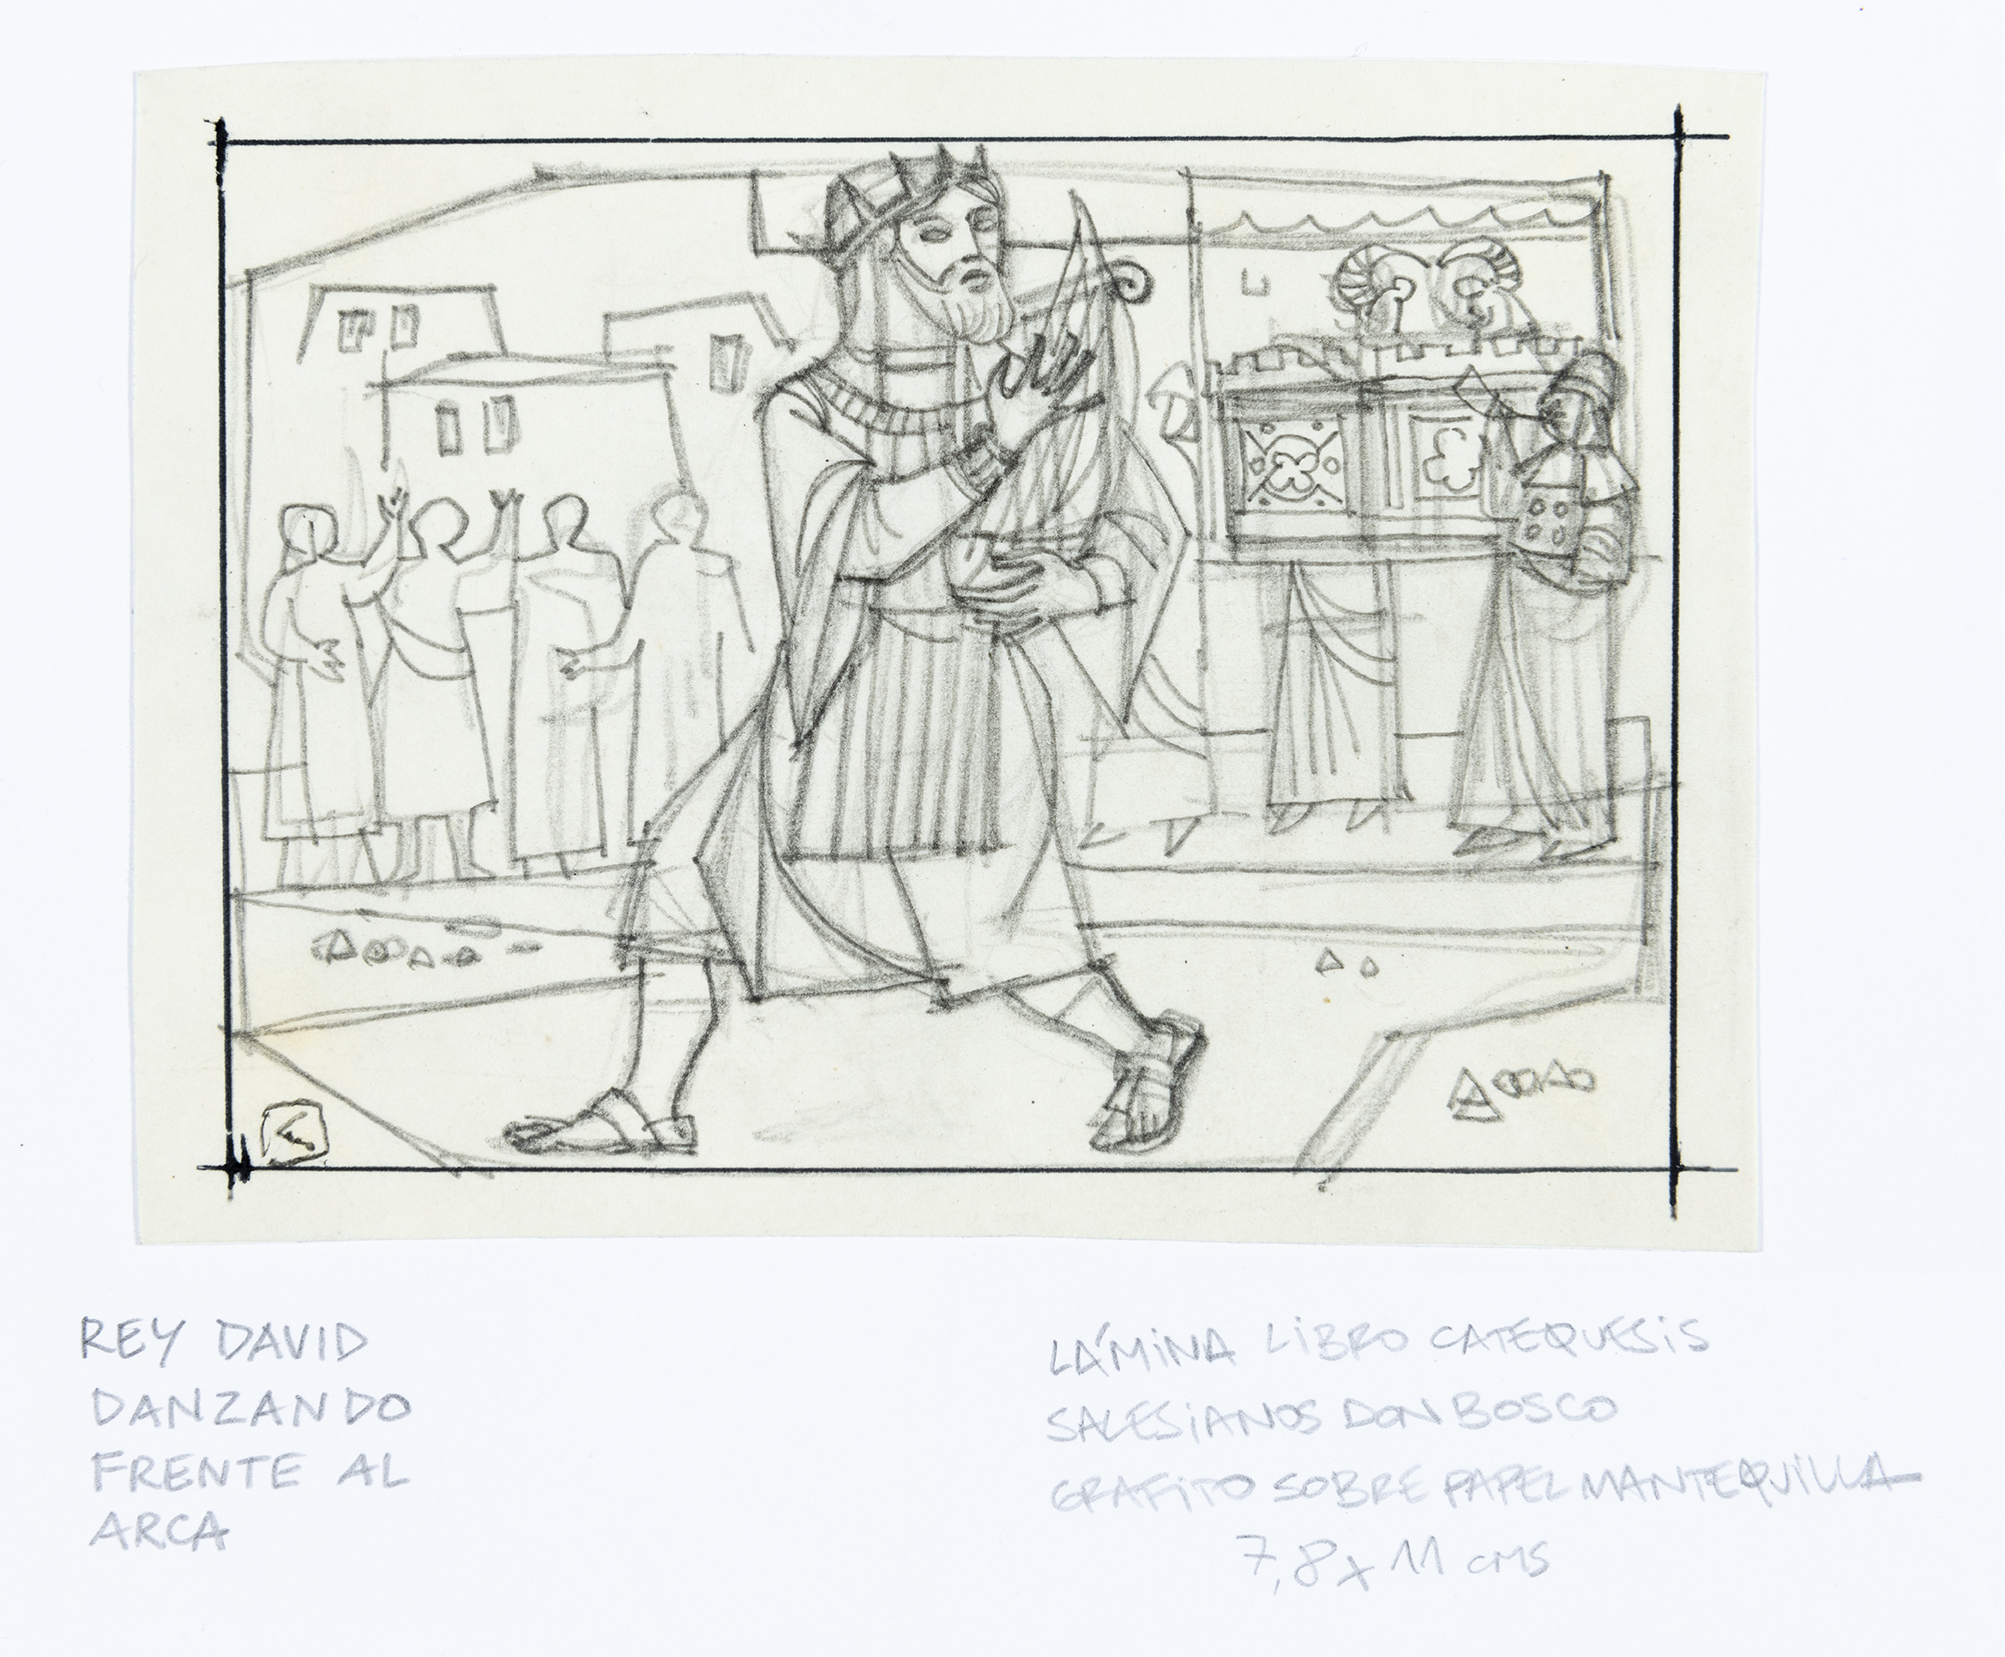 REY DAVID
DANZANDO
FRENTE AL
ARCA
LÁMINA LIBRO CATEQUESIS
SALESIANOS DON BOSCO
GRAFITO SOBRE PAPEL MANTEQUILLA
7,8 x 11 cms